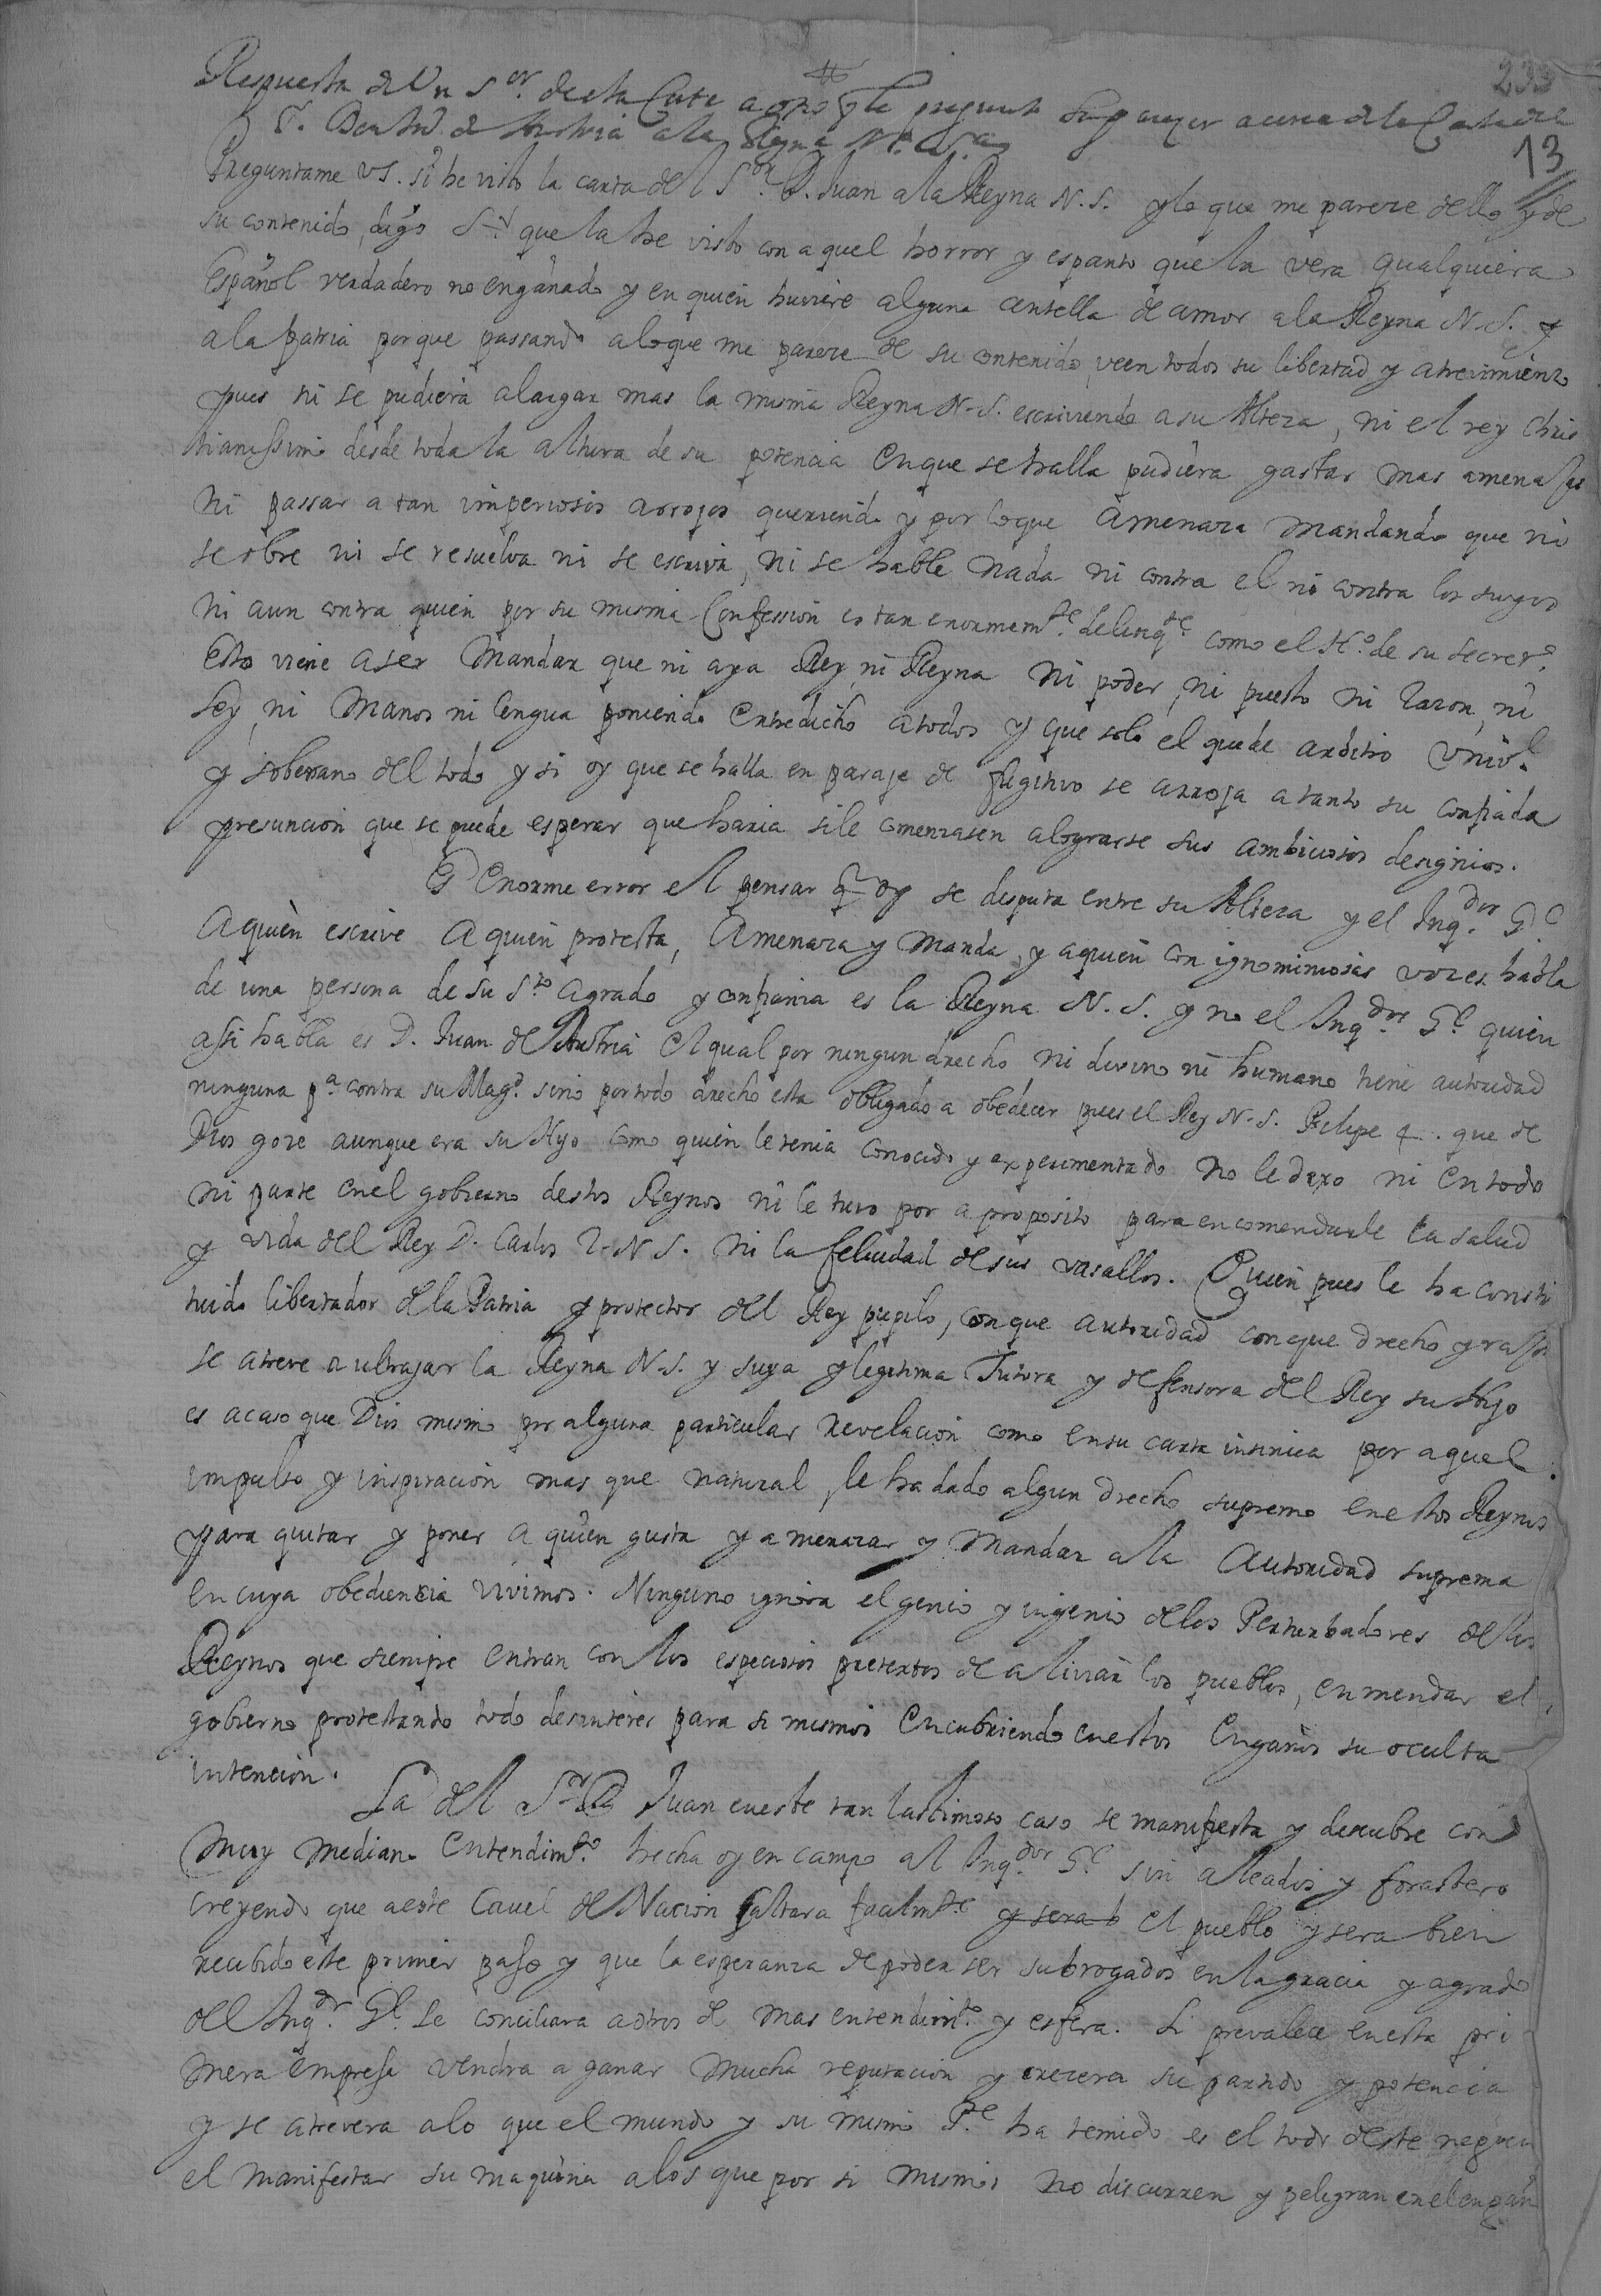 233
13
Respuesta de Un S.or desta Corte a otro q le pregunta su parezer acerca de la Carta del
S. Don Ju.o de Austria a la Reyna N.a S.a
Preguntame VS. si he visto la carta del S.or D. Juan a la Reyna N.S. y lo que me pareze dello y de
su contenido, digo S.r que la he visto con aquel horror y espanto que la vera qualquiera
Español verdadero no engañado y en quien huviere alguna centella de amor a la Reyna N.S. y
a la patria porque passando a lo que me pareze de su contenido, veen todos su libertad y atrevimiento
pues ni se pudiera alargar mas la misma Reyna N.S. escriviendo a su Alteza, ni el rey Chris
tianissimo desde toda la altura de su potencia en que se halla pudiera gastar mas amenasas
ni passar a tan imperiosos arrojos queriendo y por lo que amenaza mandando que ni
se obre ni se resuelva ni se escriva, ni se hable nada ni contra el ni contra los suyos
ni aun contra quien por su misma Confession es tan enormem.te delinq.te como el H.o de su secret.o
Esto viene a ser Mandar que ni aya Rey, ni Reyna ni poder, ni puesto ni razon, ni
Ley, ni Manos ni lengua poniendo entredicho a todos y que solo el quede arbitrio Univ.l
y soberano del todo y si oy que se halla en paraje de fugitivo se arroja a tanto su confiada
presuncion que se puede esperar que haria si le comenzasen a lograrse sus ambiciosos designios.
Es Enorme error el pensar q oy se disputa entre su Alteza y el Inq.dor G.l
A quien escrive a quien protesta, Amenaza y manda, y a quien con ignominiosas vozes habla
de una persona de su S.to agrado y confianza es la Reyna N.S. y no el Inq.dor G.l quien
assi habla es D. Juan de Austria el qual por ningun drecho ni divino ni humano tiene autoridad
ninguna p.a contra su Mag.d sino por todo drecho esta obligado a obedecer pues el Rey N.S. Felipe 4. que de
Dios goze aunque era su Hijo como quien le tenia conocido y experimentado no le dexo ni en todo
ni parte en el gobierno destos Reynos ni le tuvo por a proposito para encomendarle la salud
y vida del Rey D. Carlos 2. N S. ni la felicidad de sus vasallos. Quien pues le ha consti
tuido libertador de la Patria y protector del Rey pupilo, con que autoridad con que drecho y rason
se atreve a ultrajar la Reyna N.S. y suya y legitima Tutora y defensora del Rey su Hijo
es acaso que Dios mismo por alguna particular revelacion como en su carta insinua por aquel
impulso y inspiracion mas que natural, le ha dado algun drecho supremo en estos Reynos
para quitar y poner a quien gusta y amenazar y mandar a la Autoridad suprema
en cuya obediencia vivimos. Ninguno ignora el genio y ingenio de los Perturbadores de los
Reynos que siempre entran con los especiosos pretextos de aliviar los pueblos, enmendar el
gobierno protestando todo desinteres para si mismos encubriendo en estos Engaños su oculta
intencion.
La del S.or D Juan en este tan lastimoso caso se manifiesta y descubre con
muy mediano entendim.to hecha oy en campo al Inq.dor G.l sin aleados y forastero
creyendo que a este Cavel de Nacion saltara facilm.te y sera b el pueblo y sera bien
recibido este primer paso y que la esperanza de poder ser subrogados en la gracia y agrado
del Inq.dr G.l Le conciliara a otros de mas entendim.to y esfera. Si prevalece en esta pri
mera empresa vendra a ganar mucha reputacion y crecera su partido y potencia
y se atrevera a lo que el mundo y su mismo P.e ha temido es el todo deste negocio
el manifestar su maquina a los que por si mismos no discurren y peligran en el engaño